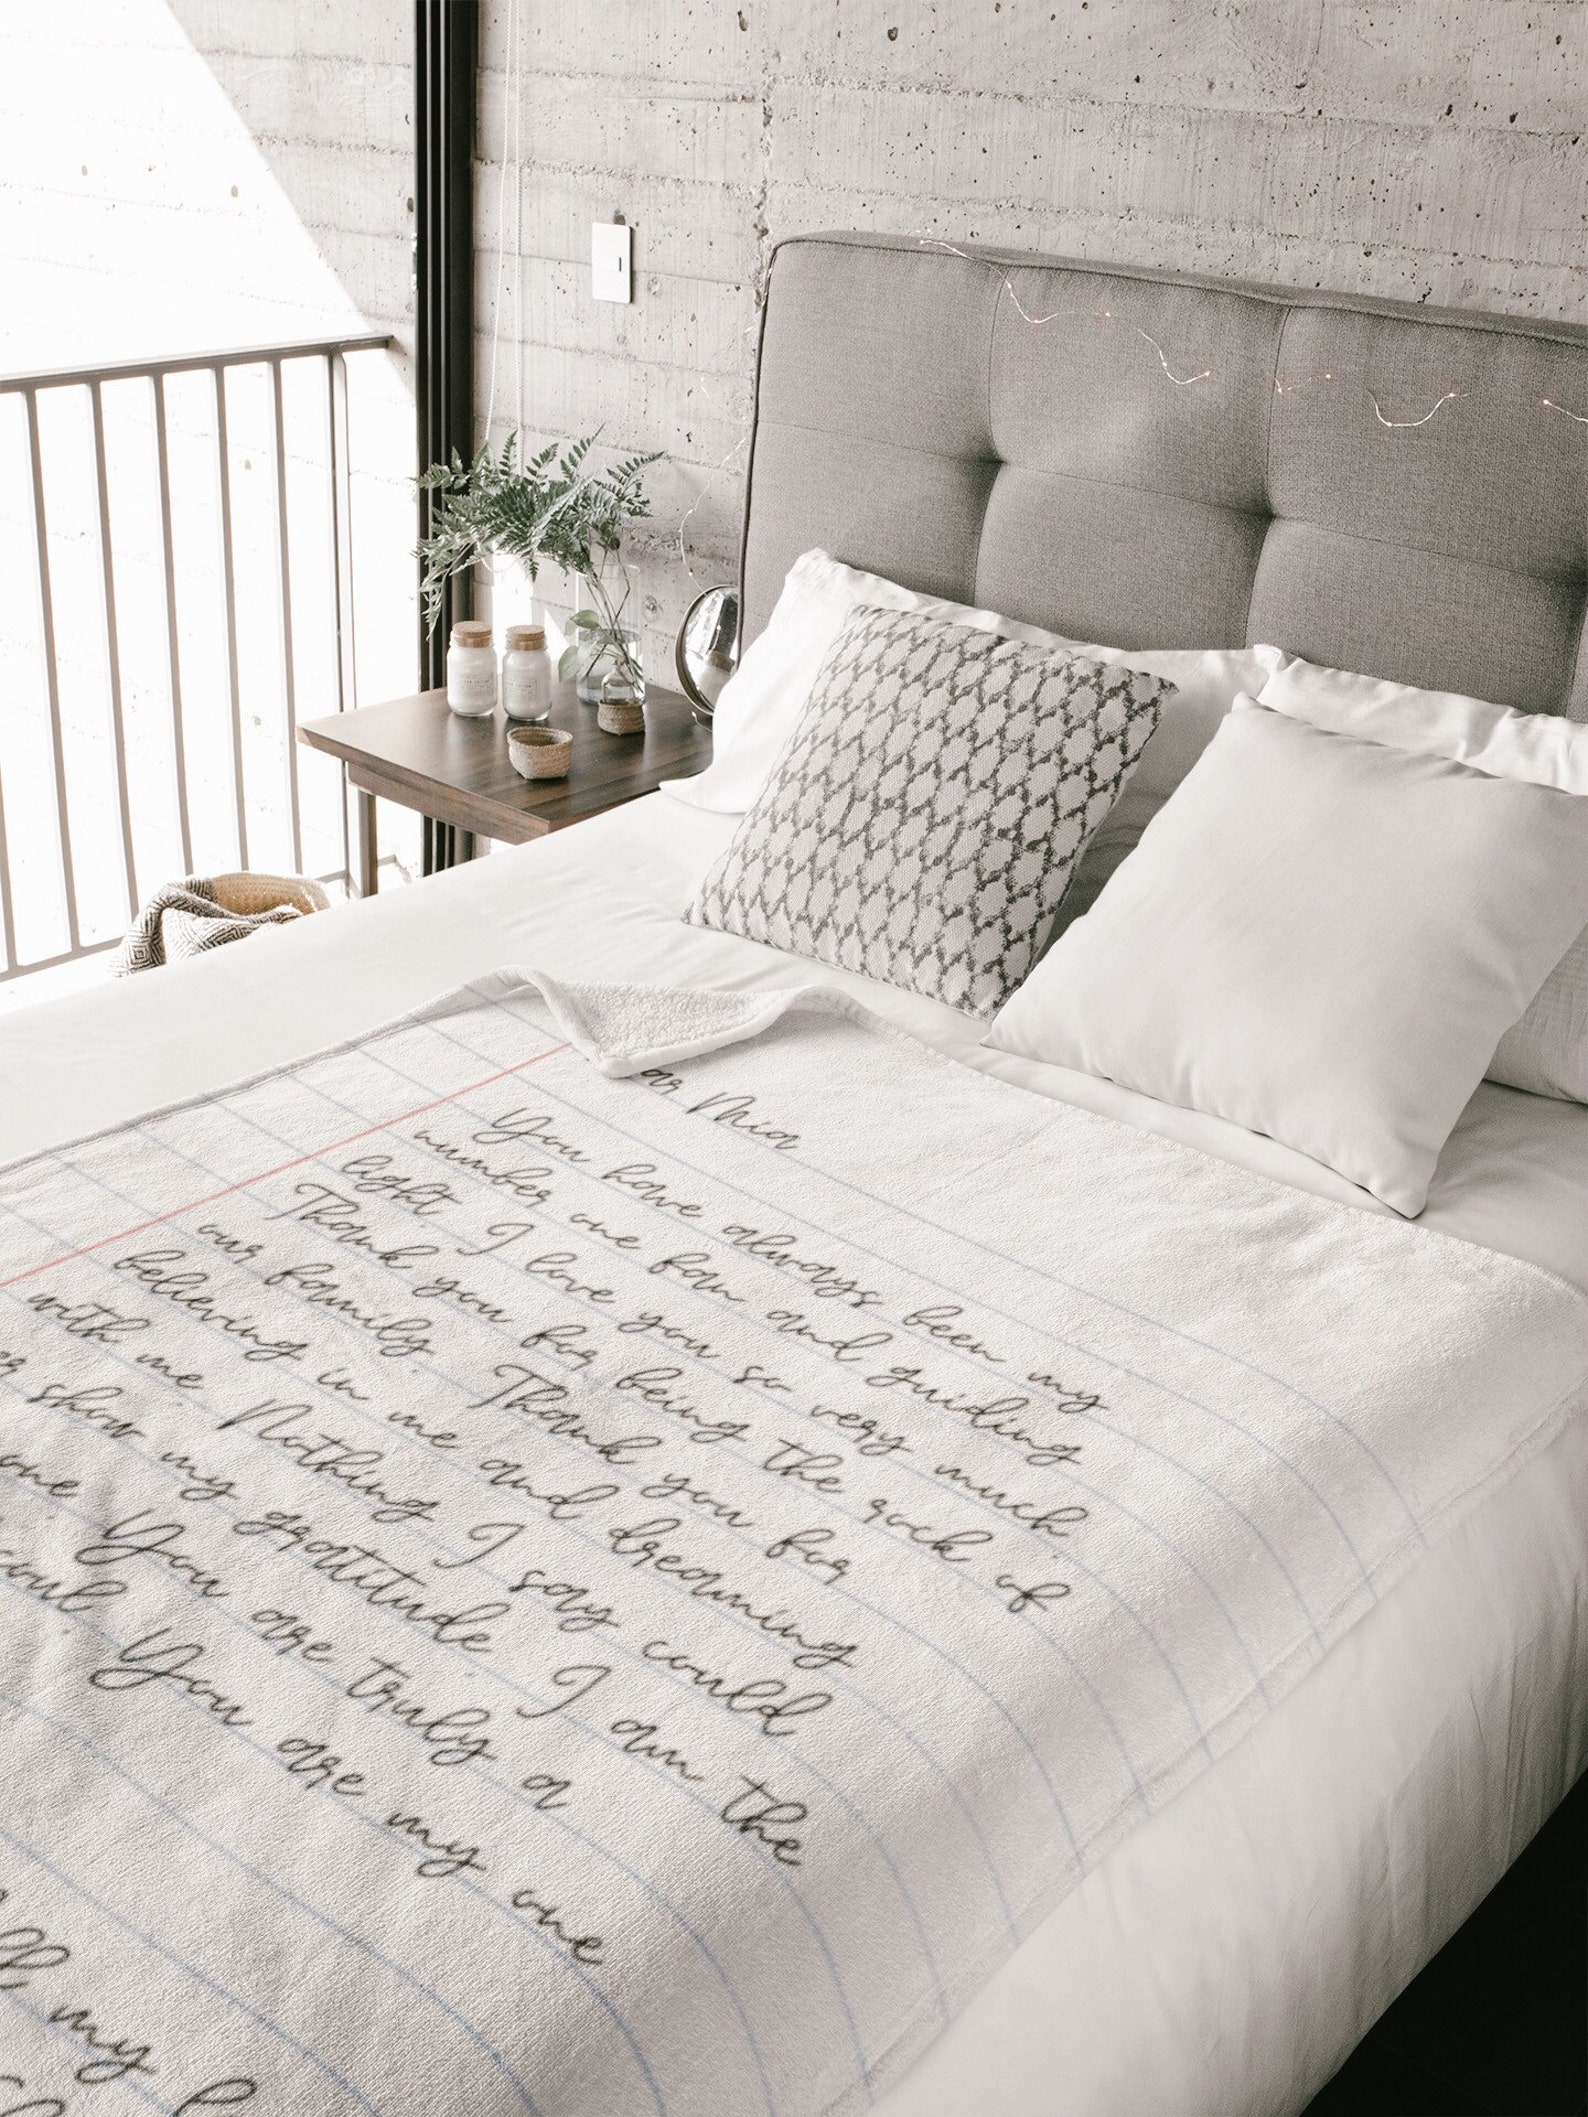 ar Mia
You have always been my
number one fan and guiding
light. I love you so very much
Thank you for being the rock of
our family. Thank you for
believing in me and dreaming
with me. Nothing I say could
er show my gratitude. I am the
one You are truly a
soul. You are my one
my